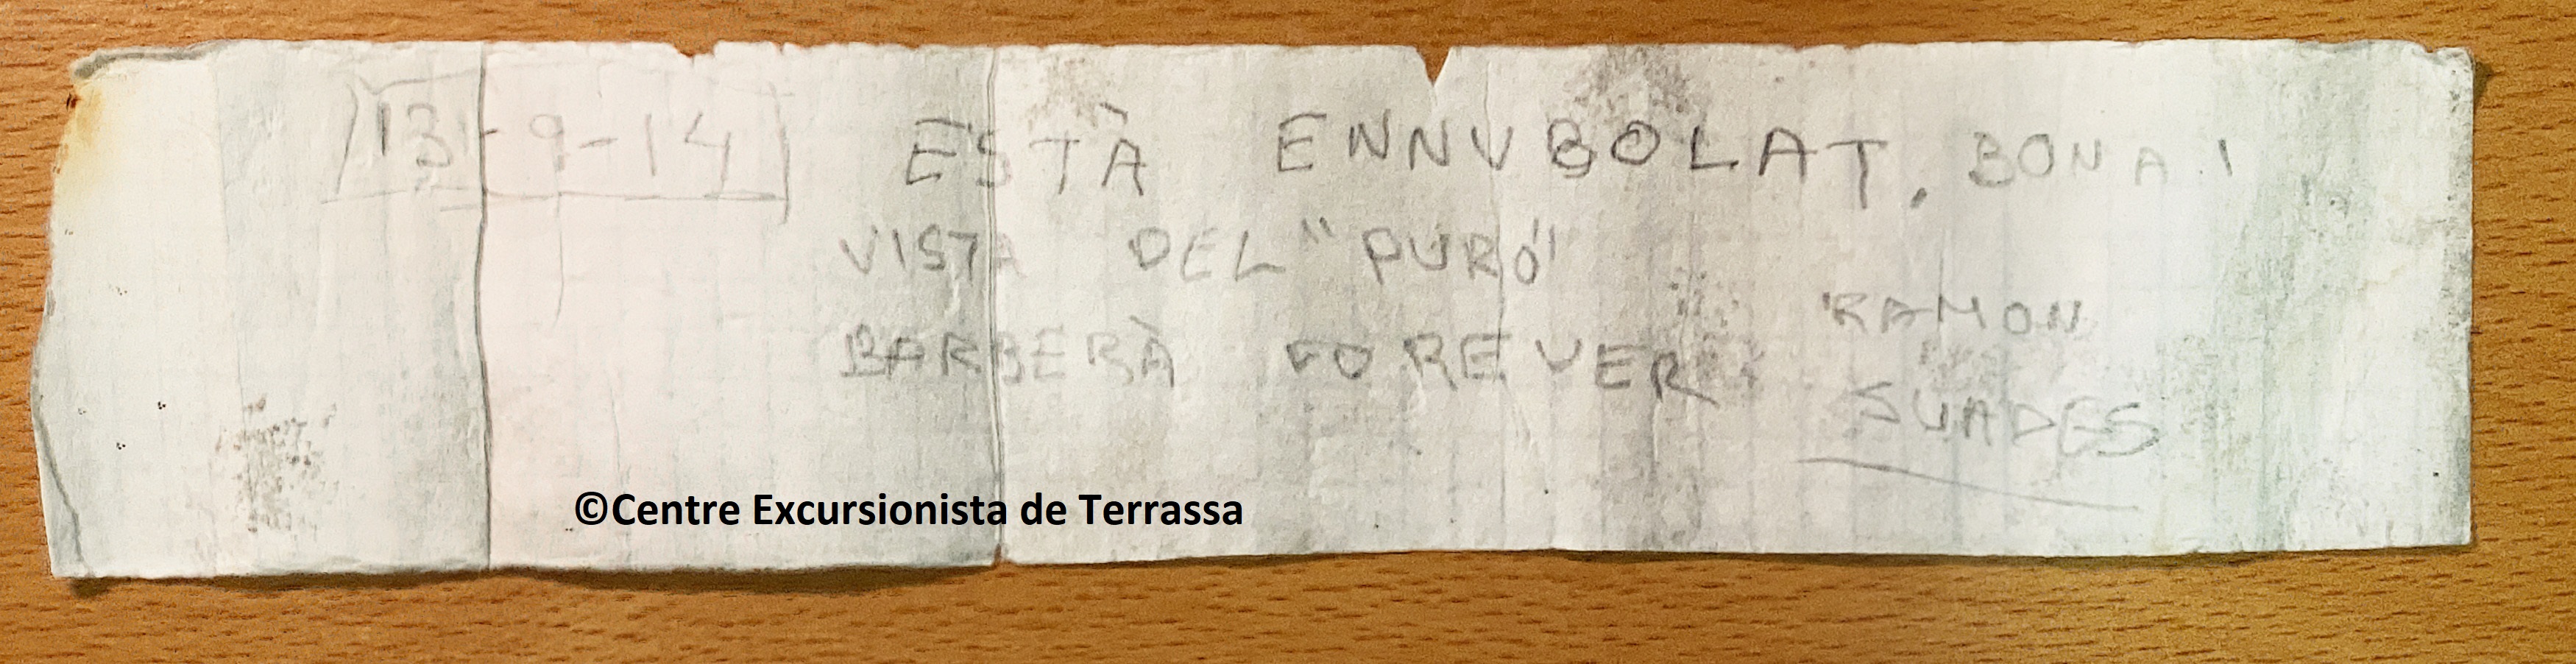 13-9-14 ESTÀ ENNUVOLAT. BONA!
VISTA DEL "PURÓ"
BARBERÀ FOREVER
RAMON
SUADES
©Centre Excursionista de Terrassa